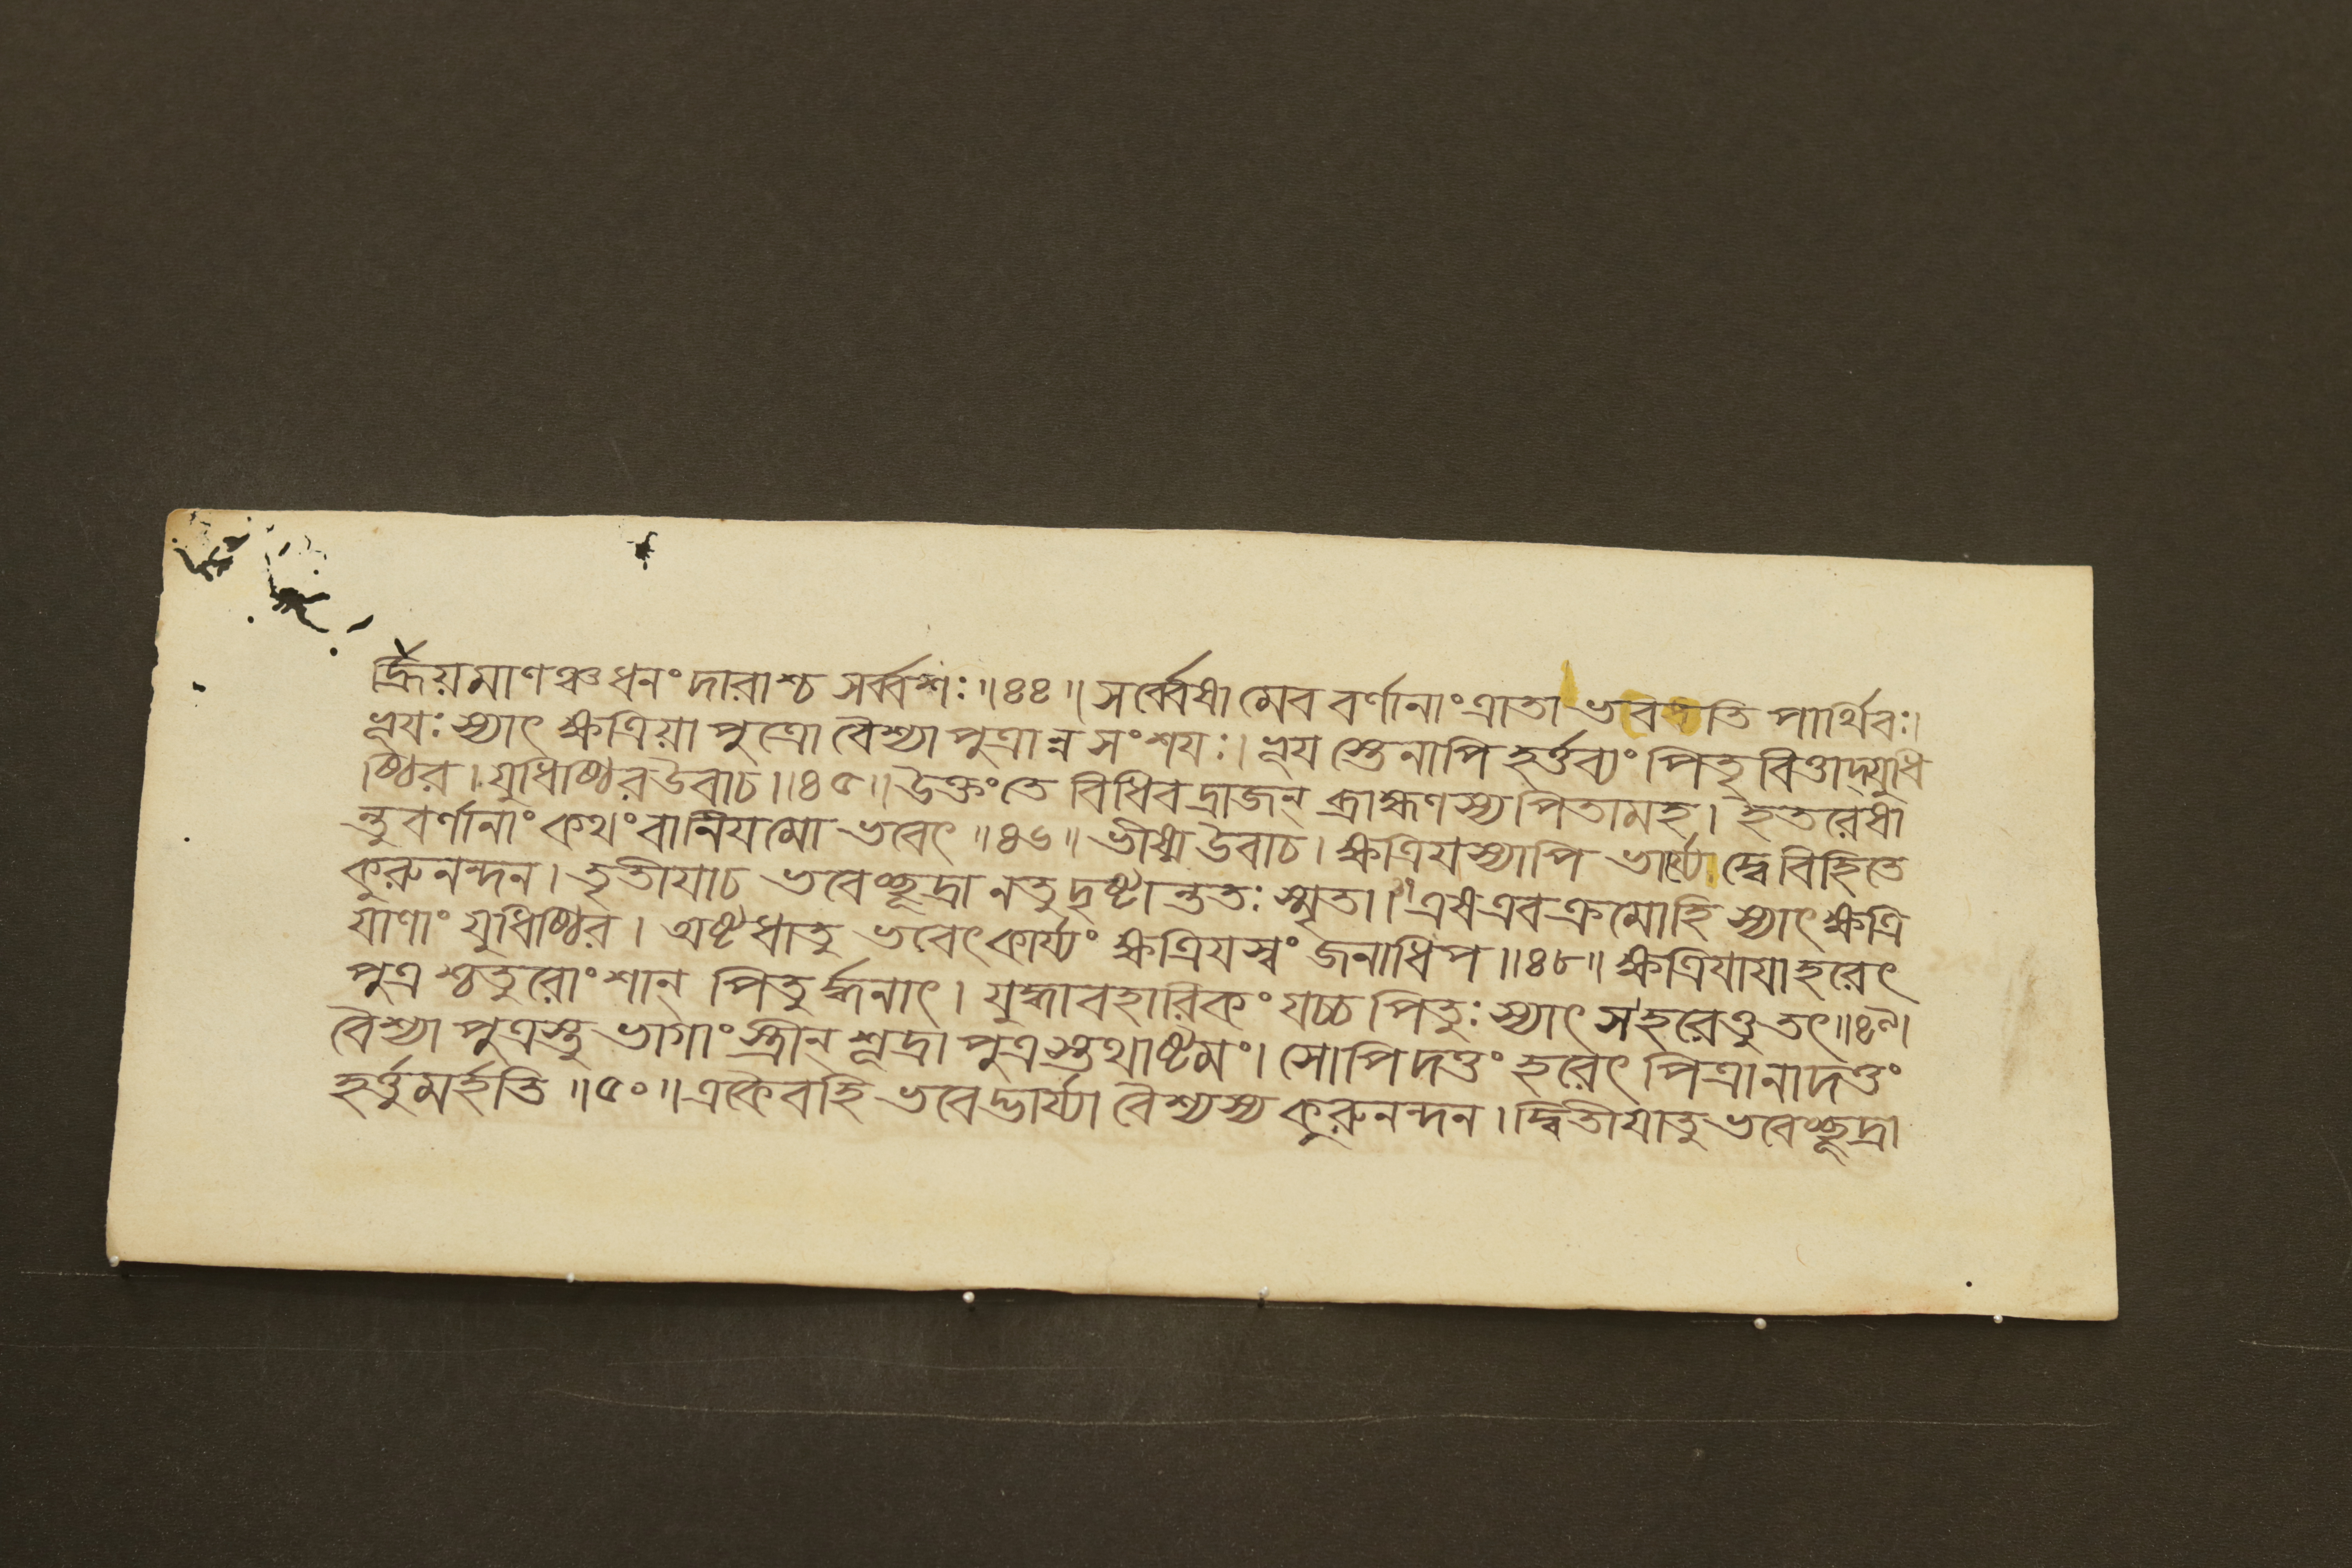 র্হ্রিয়মাণঞ্চধনং দারাশ্চ সর্ব্বশঃ॥৪৪॥ সর্ব্বেষামেব বর্ণানাং ত্রাতা ভবতি পার্থিবঃ।
ভূয়ঃ স্যাৎ ক্ষত্রিয়া পুত্রো বৈশ্যা পুত্রান্ন সংশযঃ। ভূয স্তেনাপি হর্ত্তব্যং পিতৃ বিত্তাদ্যুধি
ষ্ঠির। যুধিষ্ঠিরউবাচ॥৪৫॥ উক্তংতে বিধিবদ্রাজন্ ব্রাহ্মণস্য পিতামহ। ইতরেষা
ন্তুবর্ণানাং কথং বানিযমো ভবেৎ॥৪৬॥ ভীষ্ম উবাচ। ক্ষত্রিযস্যাপি ভার্য্যে দ্বেবিহিতে
কুরুনন্দন। তৃতীযাচ ভবেচ্ছূদ্রা নতুদৃষ্টান্ততঃ স্মৃতা।৪৭ এষএবক্রমোহি স্যাৎ ক্ষত্রি
যাণাং যুধিষ্ঠির। অষ্টধাতু ভবেৎকার্য্যং ক্ষত্রিযস্বং জনাধিপ॥৪৮॥ ক্ষত্রিযাযাহরেৎ
পুত্র শ্চতুরোংশান্ পিতুর্দ্ধনাৎ। যুদ্ধাবহারিকং যচ্চ পিতুঃ স্যাৎ স হরেত্তু তৎ॥৪৯।
বৈশ্যা পুত্রস্তু ভাগাং স্ত্রীন্ শূদ্রা পুত্রস্তথাষ্টমং। সোপিদত্তং হরেৎ পিত্রানাদত্তং
হর্ত্তুমর্হতি॥৫০॥ একৈবহি ভবেদ্ভার্য্যা বৈশ্যস্য কুরুনন্দন। দ্বিতীযাতু ভবেচ্ছূদ্রা